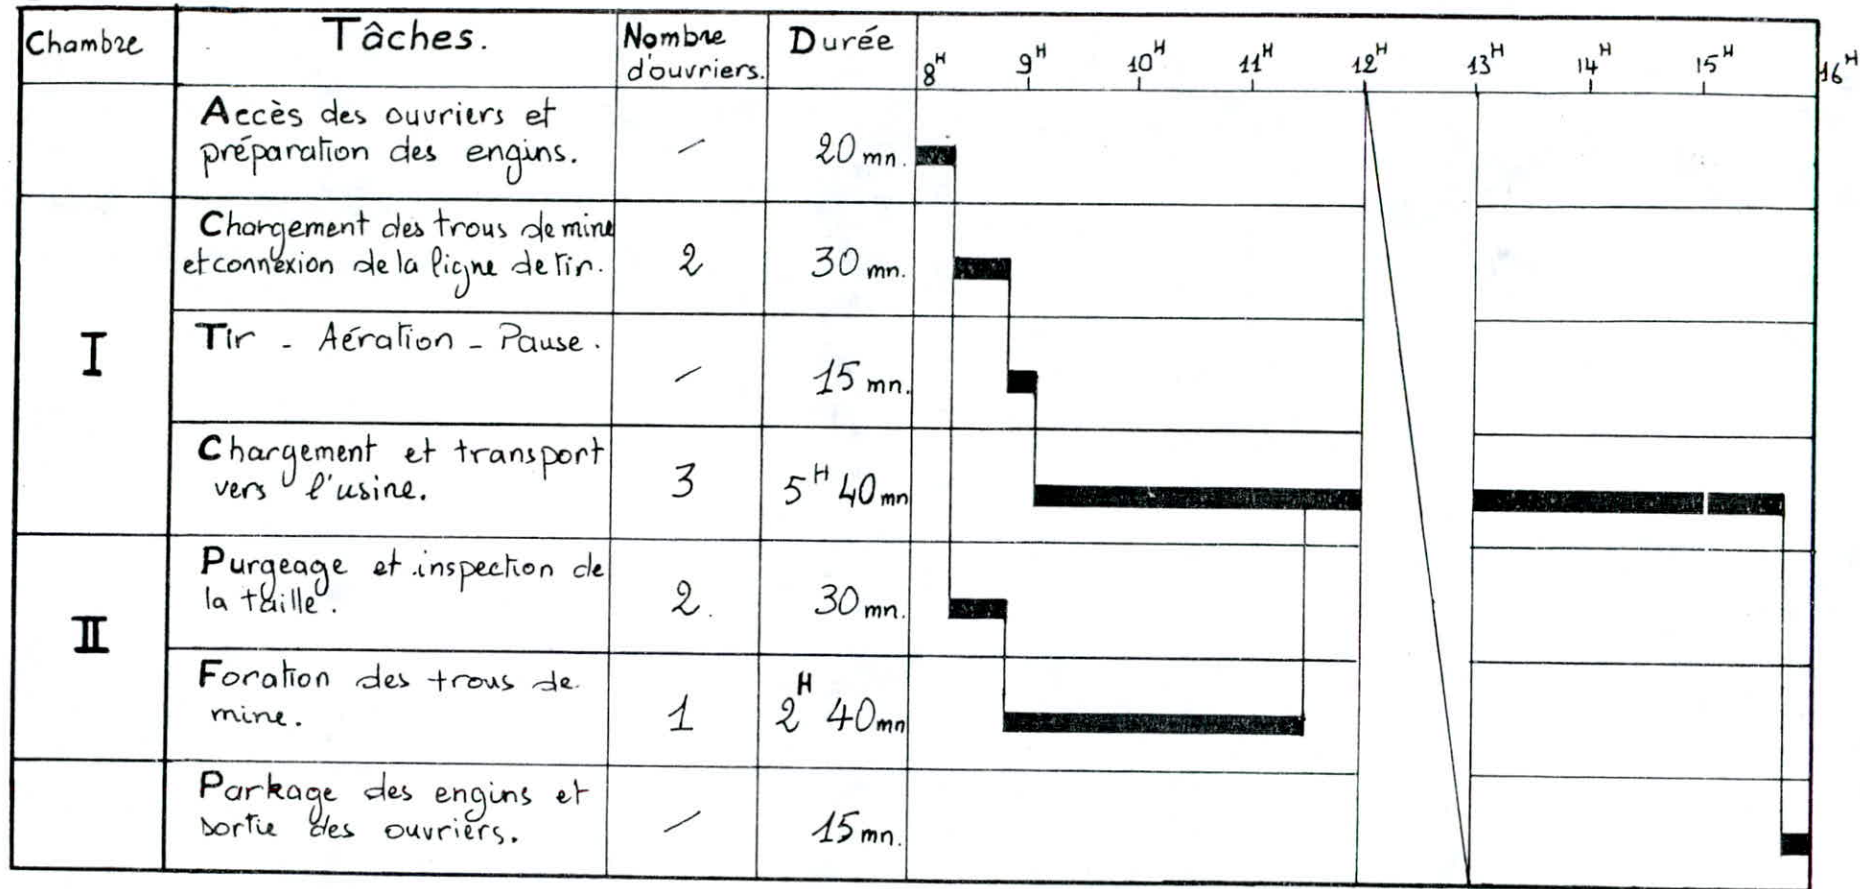 Chambre
Tâches.
Nombre
d'ouvriers.
Durée
8H 9H 10H 11H 12H 13H 14H 15H 16H
Accès des ouvriers et
préparation des engins.
/
20 mn.
I
Chargement des trous de mine
et connexion de la ligne de tir.
2
30 mn.
Tir - Aération - Pause.
/
15 mn.
Chargement et transport
vers l'usine.
3
5H 40mn
II
Purgeage et inspection de
la taille.
2.
30 mn.
Foration des trous de
mine.
1
2H 40mn
Parkage des engins et
sortie des ouvriers.
/
15 mn.